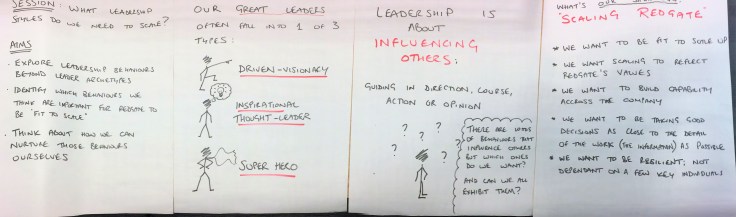 SESSION: WHAT LEADERSHIP
STYLES DO WE NEED TO SCALE?
AIMS
· EXPLORE LEADERSHIP BEHAVIOURS
BEYOND LEADER ARCHETYPES
· IDENTIFY WHICH BEHAVIOURS WE
THINK ARE IMPORTANT FOR REDGATE TO
BE "FIT TO SCALE"
· THINK ABOUT HOW WE CAN
NURTURE THOSE BEHAVIOURS
OURSELVES
OUR GREAT LEADERS
OFTEN FALL INTO 1 OF 3
TYPES:
DRIVEN-VISIONARY
INSPIRATIONAL
THOUGHT-LEADER
SUPER HERO
LEADERSHIP IS
ABOUT
INFLUENCING
OTHERS:
GUIDING IN DIRECTION, COURSE,
ACTION OR OPINION
? ? ? ? ?
THERE ARE LOTS
OF BEHAVIOURS THAT
INFLUENCE OTHERS
BUT WHICH ONES
DO WE WANT?
AND CAN WE ALL
EXHIBIT THEM?
WHAT'S OUR
"SCALING REDGATE"
* WE WANT TO BE FIT TO SCALE UP
* WE WANT SCALING TO REFLECT
REDGATE'S VALUES
* WE WANT TO BUILD CAPABILITY
ACCROSS THE COMPANY
* WE WANT TO BE TAKING GOOD
DECISIONS AS CLOSE TO THE DETAIL
OF THE WORK (THE INFORMATION) AS POSSIBLE
* WE WANT TO BE RESILIENT; NOT
DEPENDANT ON A FEW KEY INDIVIDUALS